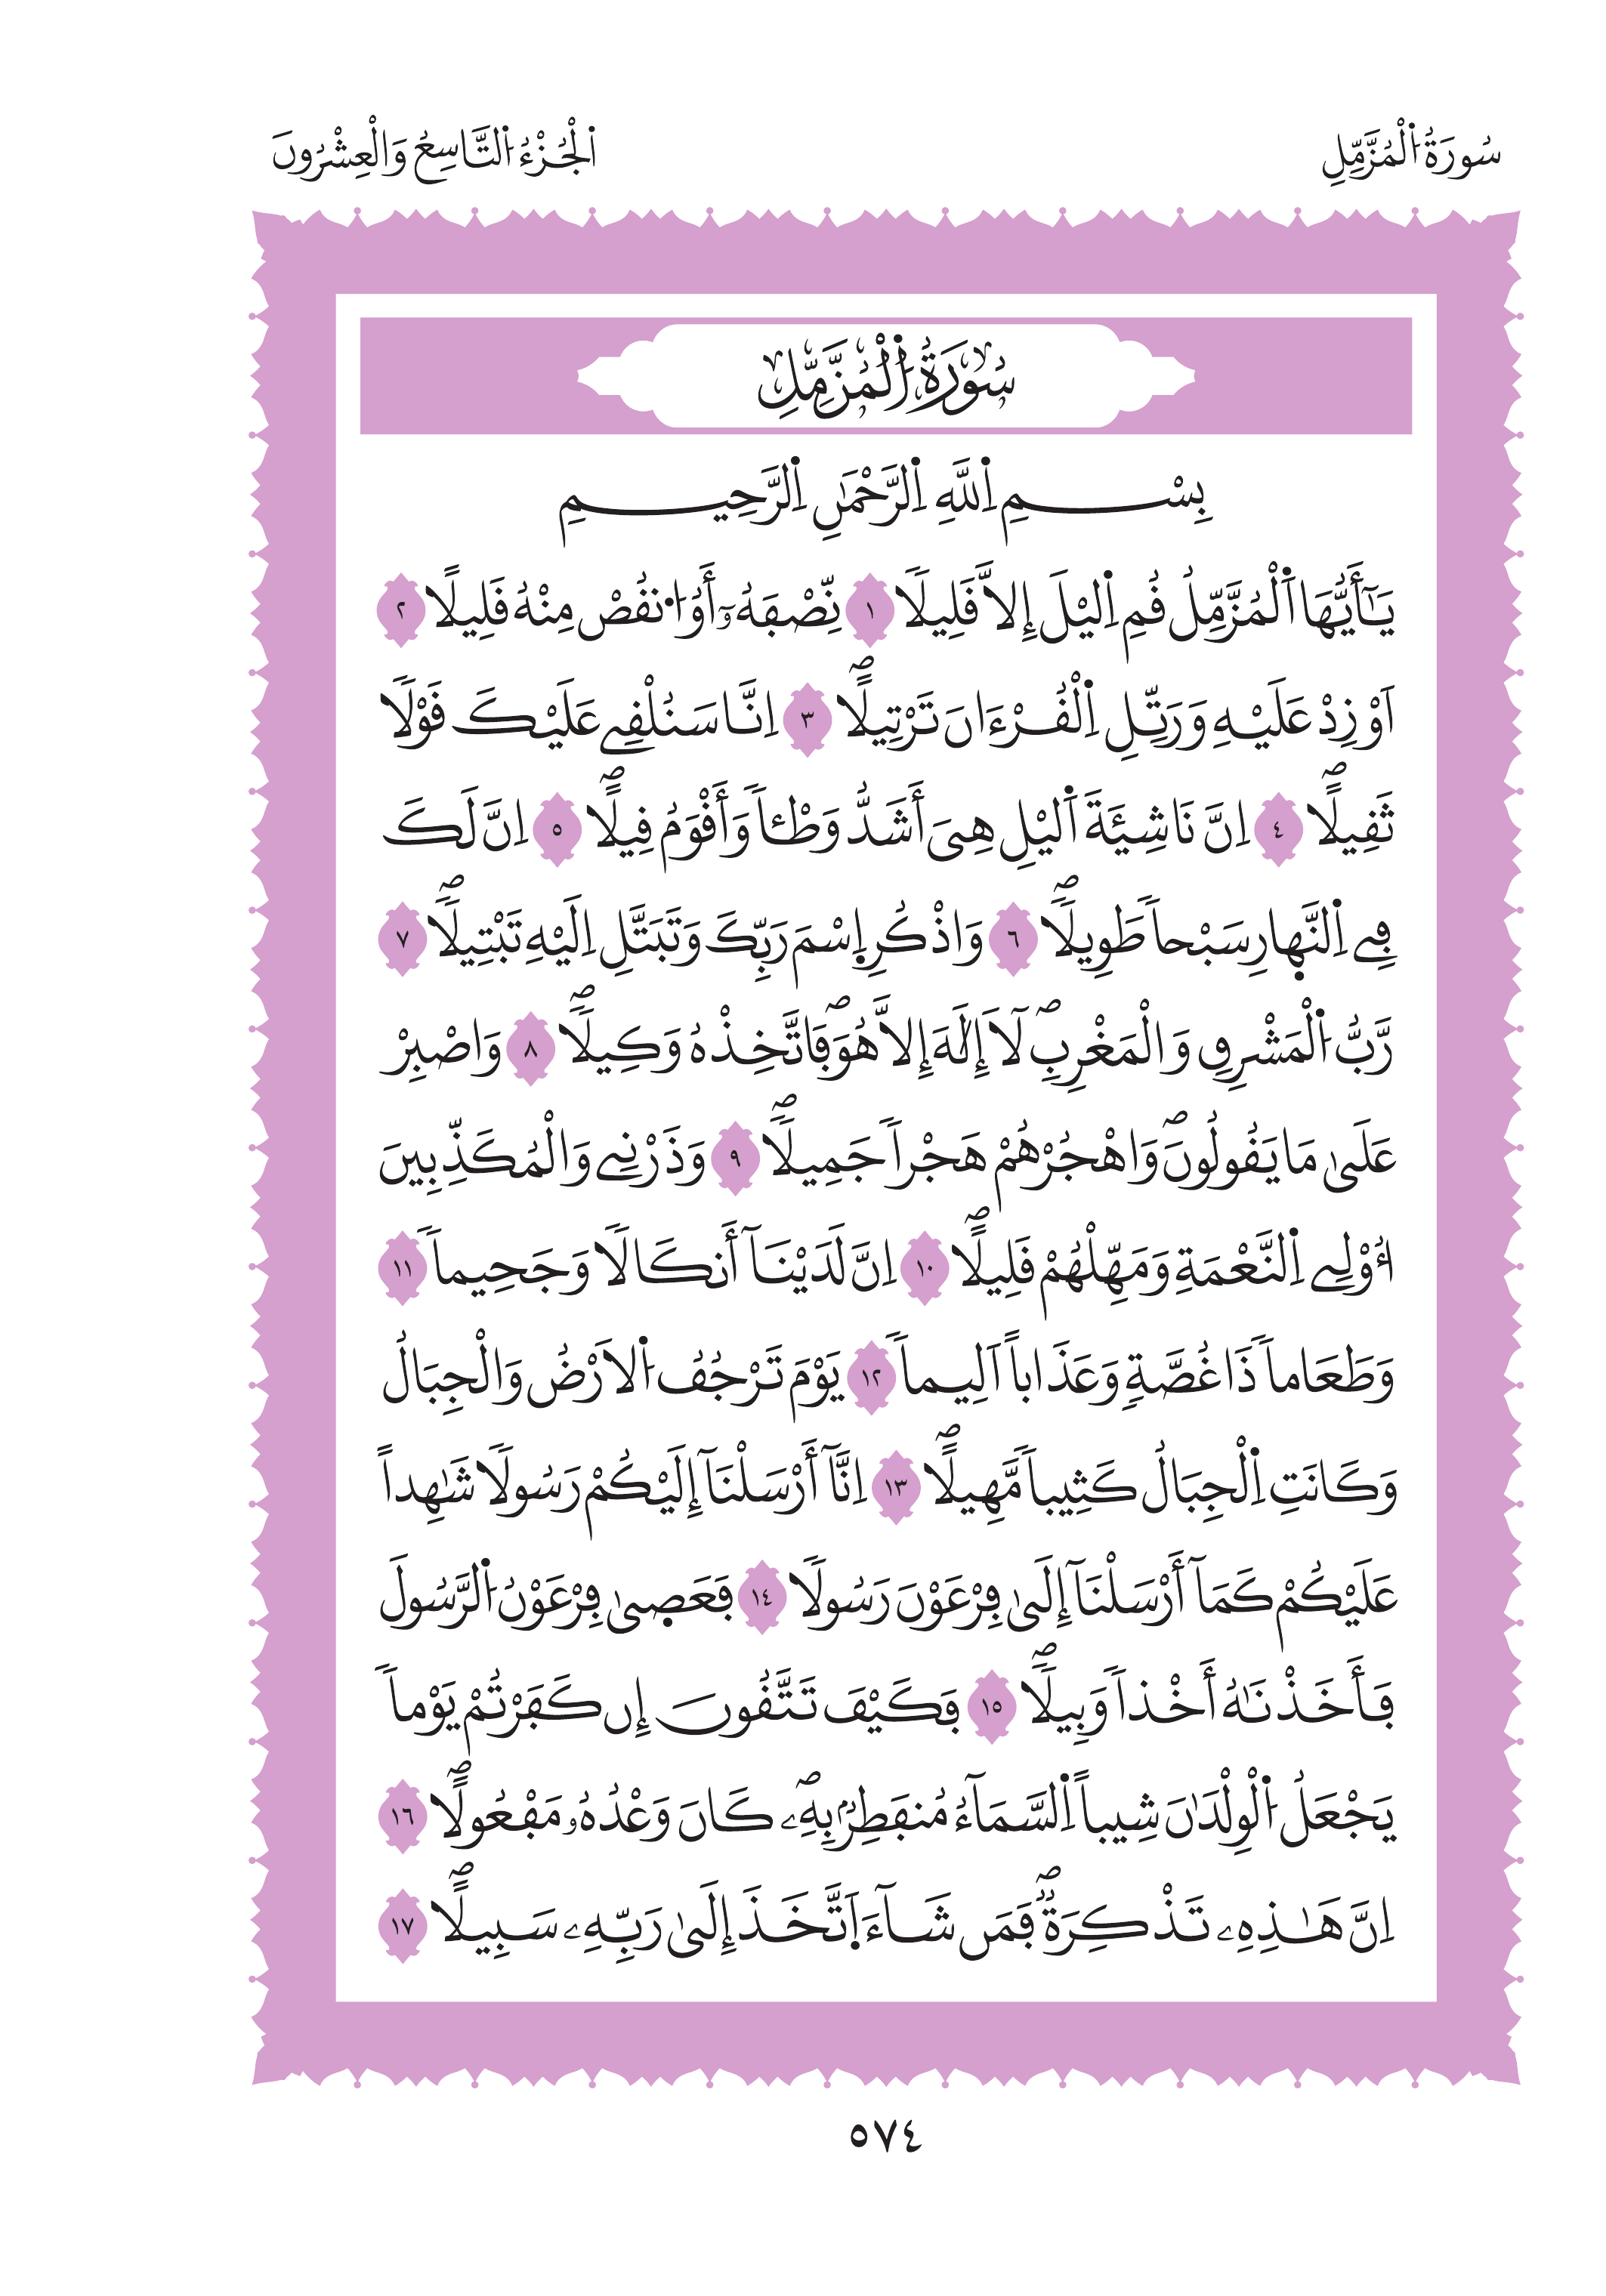 سُورَةُ اُ۬لْمُزَّمِّلِ
اَ۬لْجُزْءُ اُ۬لتَّاسِعُ وَالْعِشْرُونَ
سُورَةُ اُ۬لْمُزَّمِّلِ
بِسْمِ اِ۬للَّهِ اِ۬لرَّحْمَٰنِ اِ۬لرَّحِيمِ
يَٰٓأَيُّهَا اَ۬لْمُزَّمِّلُ قُمِ اِ۬ليْلَ إِلاَّ قَلِيلًا ١ نِّصْفَهُۥٓ أَوُ اُ۟نقُصْ مِنْهُ قَلِيلًا ٢
اَوْ زِدْ عَلَيْهِ وَرَتِّلِ اِ۬لْقُرْءَانَ تَرْتِيلًاۖ ٣ اِنَّا سَنُلْقِے عَلَيْكَ قَوْلًا
ثَقِيلًاۖ ٤ اِنَّ نَاشِئَةَ اَ۬ليْلِ هِيَ أَشَدُّ وَطْـٔاً وَأَقْوَمُ قِيلًاۖ ٥ اِنَّ لَكَ
فِے اِ۬لنَّه۪ارِ سَبْحاً طَوِيلًاۖ ٦ وَاذْكُرِ اِ۪سْمَ رَبِّكَ وَتَبَتَّلِ اِلَيْهِ تَبْتِيلًاۖ ٧
رَّبُّ اُ۬لْمَشْرِقِ وَالْمَغْرِبِۖ لَآ إِلَٰهَ إِلاَّ هُوَۖ فَاتَّخِذْهُ وَكِيلًاۖ ٨ وَاصْبِرْ
عَلَىٰ مَا يَقُولُونَۖ وَاهْجُرْهُمْ هَجْراً جَمِيلًاۖ ٩ وَذَرْنِے وَالْمُكَذِّبِينَ
أُوْلِے اِ۬لنَّعْمَةِ وَمَهِّلْهُمْ قَلِيلًاۖ ١٠ اِنَّ لَدَيْنَآ أَنكَالًا وَجَحِيماً ١١
وَطَعَاماً ذَا غُصَّةٍ وَعَذَاباً اَلِيماً ١٢ يَوْمَ تَرْجُفُ اُ۬لَارْضُ وَالْجِبَالُ
وَكَانَتِ اِ۬لْجِبَالُ كَثِيباً مَّهِيلًاۖ ١٣ اِنَّآ أَرْسَلْنَآ إِلَيْكُمْ رَسُولًا شَٰهِداً
عَلَيْكُمْ كَمَآ أَرْسَلْنَآ إِلَىٰ فِرْعَوْنَ رَسُولًا ١٤ فَعَص۪ىٰ فِرْعَوْنُ اُ۬لرَّسُولَ
فَأَخَذْنَٰهُ أَخْذاً وَبِيلًاۖ ١٥ فَكَيْفَ تَتَّقُونَ إِن كَفَرْتُمْ يَوْماً
يَجْعَلُ اُ۬لْوِلْدَٰنَ شِيباً اِ۬لسَّمَآءُ مُنفَطِرُۢ بِهِۦۖ كَانَ وَعْدُهُۥ مَفْعُولًاۖ ١٦
اِنَّ هَٰذِهِۦ تَذْكِرَةٞۖ فَمَن شَآءَ اَ۪تَّخَذَ إِلَىٰ رَبِّهِۦ سَبِيلًاۖ ١٧
٥٧٤